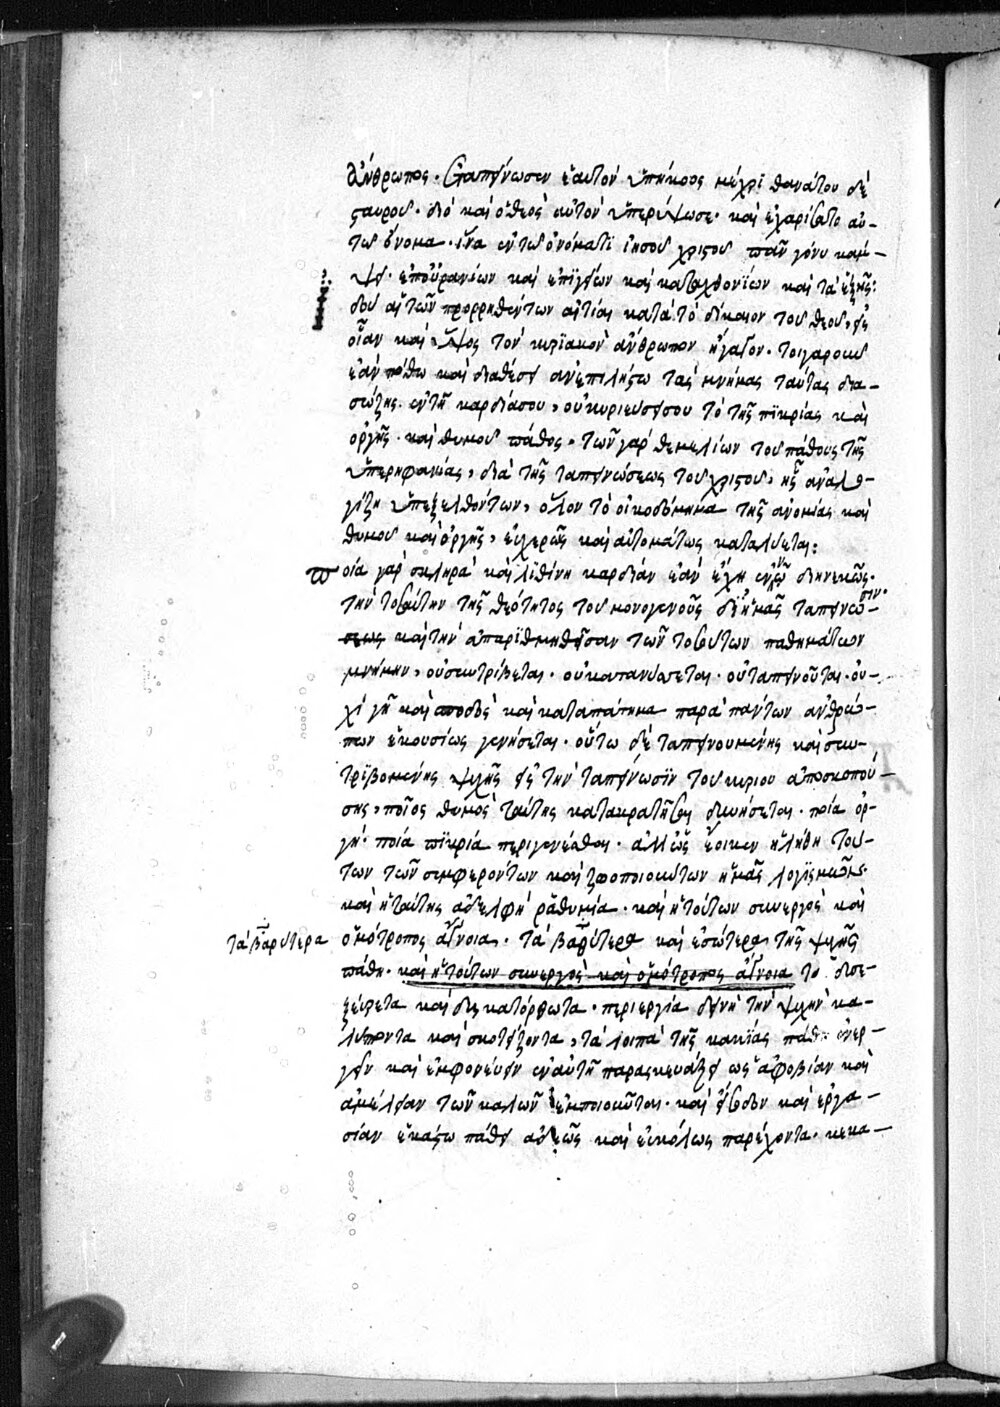 ἄνθρωπος. ἐταπείνωσεν ἑαυτὸν ὑπήκοος μέχρι θανάτου δὲ
σταυροῦ. διὸ καὶ ὁ θεὸς αὐτὸν ὑπερύψωσε. καὶ ἐχαρίσατο αὐ-
τῶ ὄνομα. ἵνα ἐν τῶ ὀνόματι ἰησοῦ χριστοῦ πᾶν γόνυ κάμ-
ψει ἐπουρανίων καὶ ἐπϊγείων καὶ καταχθονΐων καὶ τὰ ἑξῆς:
ἰδοὺ αἱ τῶν προρρηθέντων αἰτίαι κατὰ τὸ δίκαιον τοῦ θεοῦ, εἰς
οἷαν καὶ ὕψος τὸν κυριακὸν ἄνθρωπον ἤγαγον. τοιγαροῦν
ἐὰν πόθω καὶ διαθέσει ἀνεπιλήστω τὰς μνήμας ταύτας δια-
σώζης ἐν τῆ καρδία σου, οὐ κυριεύσει σου τὸ τῆς πϊκρίας καὶ
ὀργῆς. καὶ θυμοῦ πάθος. τῶν γὰρ θεμελίων τοῦ πάθους τῆς
ὑπερηφανίας, διὰ τῆς ταπεινώσεως τοῦ χριστοῦ, ἧς ἀναλο-
γίζη ὑπεξελθόντων, ὅλον τὸ οἰκοδόμημα τῆς ἀνομίας καὶ
θυμοῦ καὶ ὀργῆς, εὐχερῶς καὶ αὐτομάτως καταλύεται:
ποία γὰρ σκληρὰ καὶ λιθίνη καρδίαν ἐὰν ἔχη ἐν νῶ διηνεκῶς.
τὴν τοσαύτην τῆς θεότητος τοῦ μονογενοῦς δι ἡμᾶς ταπείνω-
σιν.
σεως καὶ τὴν ἀπαρϊθμηθεῖσαν τῶν τοσούτων παθημάτων
μνήμην, οὐ συντρίβεται. οὐ κατανύσσεται. οὐ ταπεινοῦται. οὐ-
χὶ γῆ καὶ σποδὸς καὶ καταπάτημα παρὰ πάντων ἀνθρώ-
πων ἑκουσίως γενήσεται. οὕτω δὲ ταπεινουμένης καὶ συν-
τρϊβομένης ψυχῆς εἰς τὴν ταπείνωσϊν τοῦ κυρίου ἀποσκοπού-
σης, ποῖος θυμὸς ταύτης κατακρατῆσαι δυνήσεται. ποία ὀρ-
γὴ. ποία πϊκρία περιγενέσθαι. ἀλλ ὡς ἔοικεν ἡ λήθη τού-
των τῶν συμφερόντων καὶ ζωοποιούντων ἡμᾶς λογϊσμῶν.
καὶ ἡ ταύτης ἀδελφὴ ῥαθυμία. καὶ ἡ τούτων συνεργὸς καὶ
τὰ βαρύτερα
ὁμότροπος ἄγνοια. τὰ βαρύτερα καὶ ἐσώτερα τῆς ψυχῆς
πάθη. καὶ ἡ τούτων συνεργὸς καὶ ὁμότροπος ἄγνοια τὸ δυσε-
ξεύρετα καὶ δυσκατόρθωτα. περιεργία δεινὴ τὴν ψυχὴν κα-
λύπτοντα καὶ σκοτίζοντα, τὰ λοιπὰ τῆς κακΐας πάθη ἐνερ-
γεῖν καὶ ἐμφωλεύειν ἐν αὐτῆ παρασκευάζει ὡς ἀφοβίαν καὶ
ἀμέλειαν τῶν καλῶν ἐμποιοῦνται. καὶ εἴσοδον καὶ ἐργα-
σίαν ἑκάστω πάθει ἀδεῶς καὶ εὐκόλως παρέχοντα. κεκα-